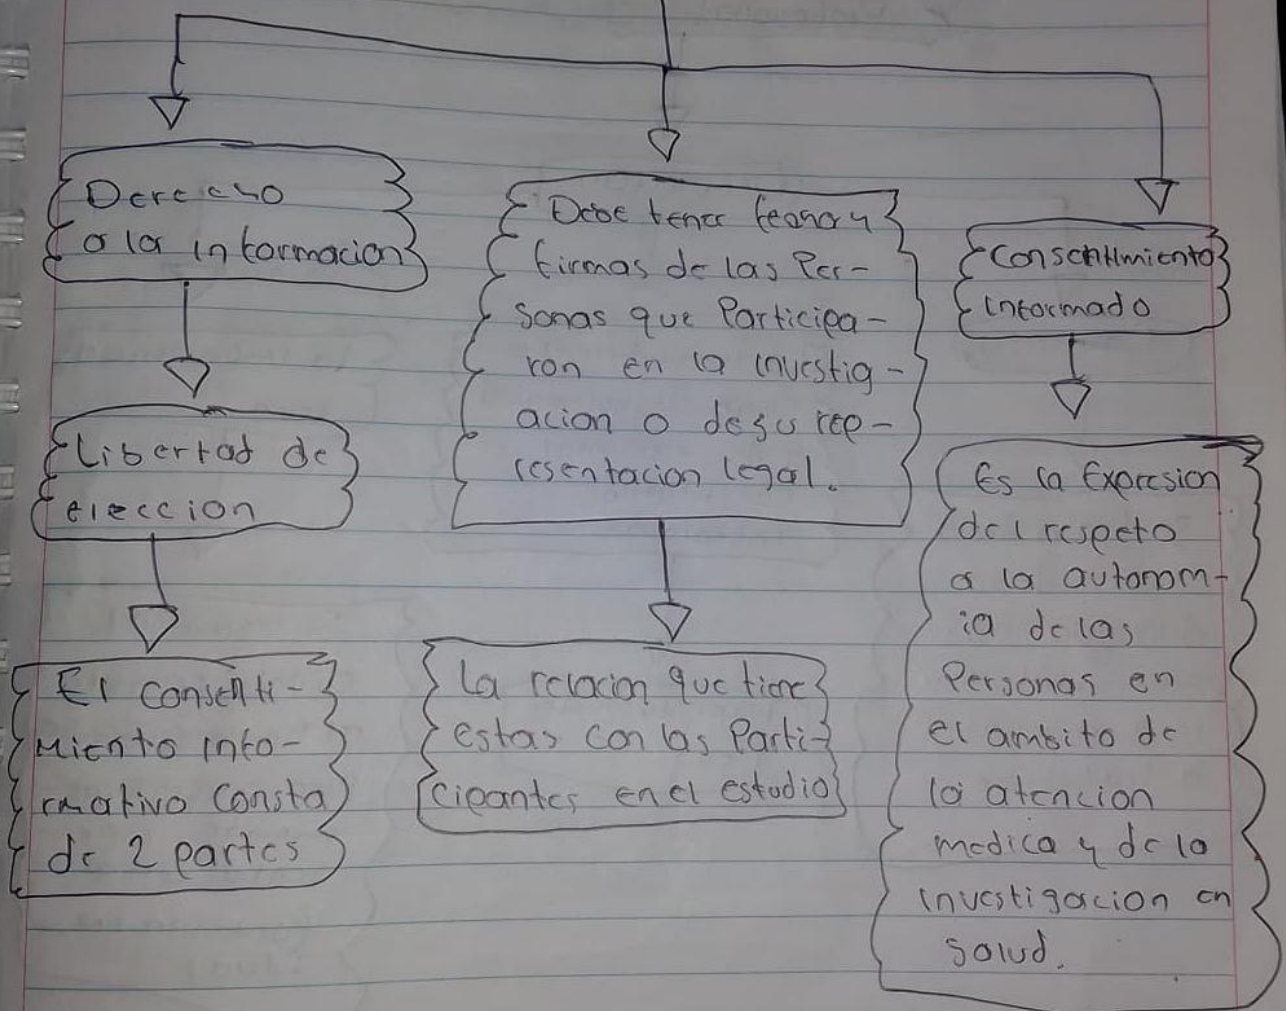 Derecho
a la informacion
Libertad de
eleccion
El consenti-
miento info-
rmativo consta
de 2 partes
Debe tener fecha y
firmas de las Per-
sonas que Participa-
ron en la investig-
acion o de su rep-
resentacion legal.
La relacion que tiene
estas con las Parti-
cipantes en el estudio
Consentimiento
informado
Es la Expresion
del respeto
a la autonom-
ia de las
Personas en
el ambito de
la atencion
medica y de la
investigacion en
salud.